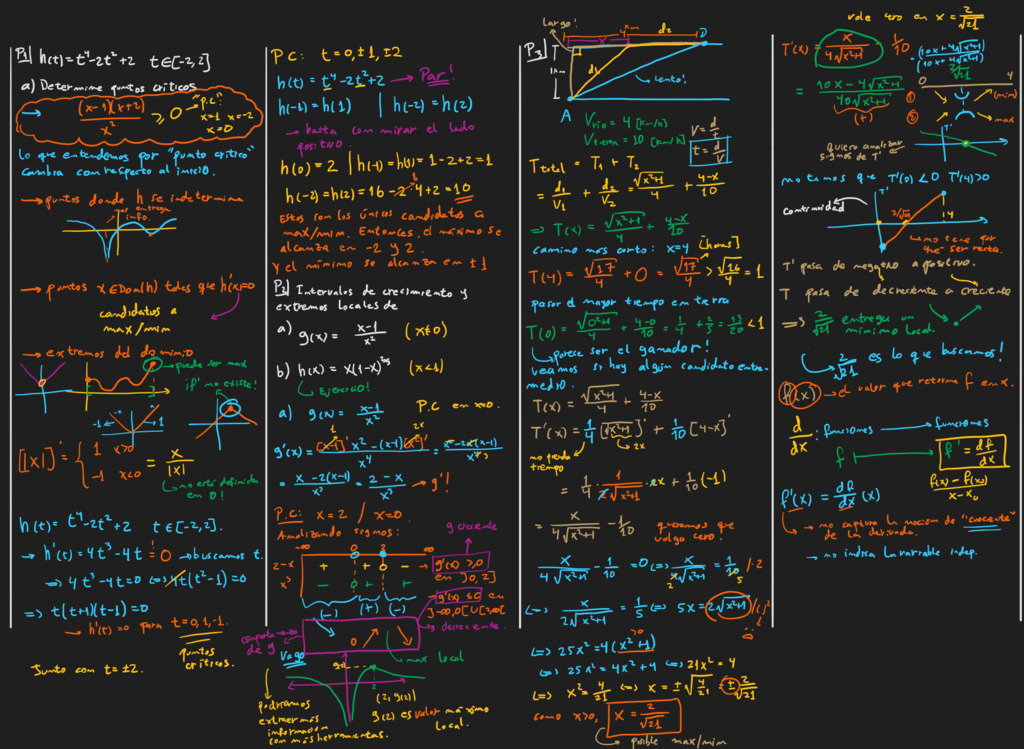 P1| h(t) = t⁴-2t²+2 t∈[-2,2]
a) Determine puntos críticos
(x-1)(x+2) / x² ≥ 0 "P.C"
x=1 x=-2
x=0
lo que entendemos por "punto crítico"
cambia con respecto al inicio.
→ puntos donde h se indetermina
entrega info.
→ puntos x∈Dom(h) tales que h'(x)=0
candidatos a
max/min
→ extremos del dominio
puede ser max
if' no existe!
-x x
-1 1
[|x|]' = { 1 x>0
-1 x<0 = x/|x|
no está definida
en 0!
h(t) = t⁴-2t²+2 t∈[-2,2].
→ h'(t) = 4t³-4t = 0 → buscamos t.
⇒ 4t³-4t=0 ⇔ 4t(t²-1)=0
⇒ t(t+1)(t-1)=0
→ h'(t)=0 para t=0,1,-1.
puntos
críticos.
Junto con t=±2.
P.C: t=0,±1,±2
h(t) = t⁴-2t²+2 → Par!
h(-1) = h(1) | h(-2) = h(2)
→ basta con mirar el lado
positivo.
h(0) = 2 | h(-1) = h(1) = 1-2+2=1
h(-2)=h(2)=16-2·4+2=10
Estos son los únicos candidatos a
max/min. Entonces, el máximo se
alcanza en -2 y 2.
Y el mínimo se alcanza en ±1
P2| Intervalos de crecimiento y
extremos locales de
a) g(x) = x-1 / x² (x≠0)
b) h(x) = x(1-x)^2/5 (x<1)
EJERCICIO!
a) g(x) = x-1 / x² P.C en x=0.
g'(x) = (x-1)' x² - (x-1)(x²)' / x⁴ = x²-2x(x-1) / x⁴
1 2x
= x-2(x-1) / x³ = 2-x / x³ → g'!
P.C: x=2 / x=0.
Analizando signos:
g creciente
-∞ 0 2 +∞
2-x + + 0 -
x³ - 0 + +
(-) (+) (-)
g'(x) >0
en ]0,2]
g'(x) ≤0 en
]-∞,0[ ∪ [2,∞[
decreciente.
comportamiento
de g
0
max local
Vago
g(2)
2
(2, g(2))
g(2) es valor máximo
local.
podríamos
extraer más
información
con más herramientas.
P3| Largo!
x 4km d₂ D
1km d₁ lento!
A
Vrio = 4 [km/h]
Vtierra = 10 [km/h]
V = d/t
t = d/V
Ttotal = T₁ + T₂
= d₁/V₁ + d₂/V₂ = √x²+1 / 4 + 4-x / 10
⇒ T(x) = √x²+1 / 4 + 4-x / 10
camino más corto: x=4 [horas]
T(4) = √17 / 4 + 0 = √17 / 4 > √16 / 4 = 1
pasar el mayor tiempo en tierra
T(0) = √0²+1 / 4 + 4-0 / 10 = 1/4 + 2/5 = 13/20 < 1
parece ser el ganador!
veamos si hay algún candidato entre-
medio.
T(x) = √x²+1 / 4 + 4-x / 10
T'(x) = 1/4 [√x²+1]' + 1/10 [4-x]'
2x
no pierdo
tiempo
= 1/4 · 1 / 2√x²+1 · 2x + 1/10 (-1)
= x / 4√x²+1 - 1/10 queremos que
valga cero!
x / 4√x²+1 - 1/10 = 0 ⇔ x / 4√x²+1 = 1/10 /·2
2 5
⇔ x / 2√x²+1 = 1/5 ⇔ 5x = 2√x²+1 /( )²
>0
⇔ 25x² = 4(x²+1)
⇔ 25x² = 4x²+4 ⇔ 21x² = 4
⇔ x² = 4/21 ⇔ x = ±√4/21 = ± 2/√21
como x>0, x = 2/√21
posible max/min
vale cero en x = 2/√21
T'(x) = x / 4√x²+1 - 1/10 · (10x+4√x²+1) / (10x+4√x²+1)
= 10x-4√x²+1 / 40√x²+1
(+)
0 2/√21 4
① (min)
② max
T'
quiero analizar
signos de T'
notemos que T'(0)<0 T'(4)>0
continuidad
T'
2/√21
4
no tiene por
qué ser recta.
T' pasa de negativo a positivo.
T pasa de decreciente a creciente
⇒ 2/√21 entrega un
mínimo local.
2/√21 es lo que buscamos!
f(x) → el valor que retorna f en x.
d/dx : funciones → funciones
f ↦ f' = df/dx
f(x)-f(x₀) / x-x₀
f'(x) = df/dx (x)
→ no captura la noción de "cociente"
de la derivada.
→ no indica la variable indep.